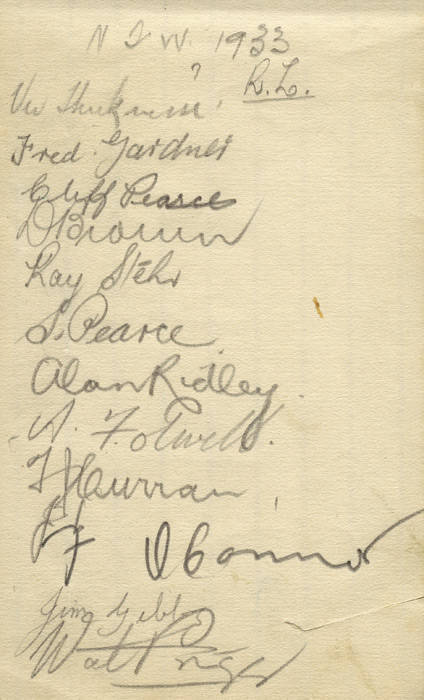 N S W 1933
?
R.L.
Vic Thicknesse
Fred Gardner
Cliff Pearce
D Brown
Ray Stehr
S. Pearce
Alan Ridley.
A. Folwell.
Curran
F O'Connor
Jim Gibbs
Wal Prigg